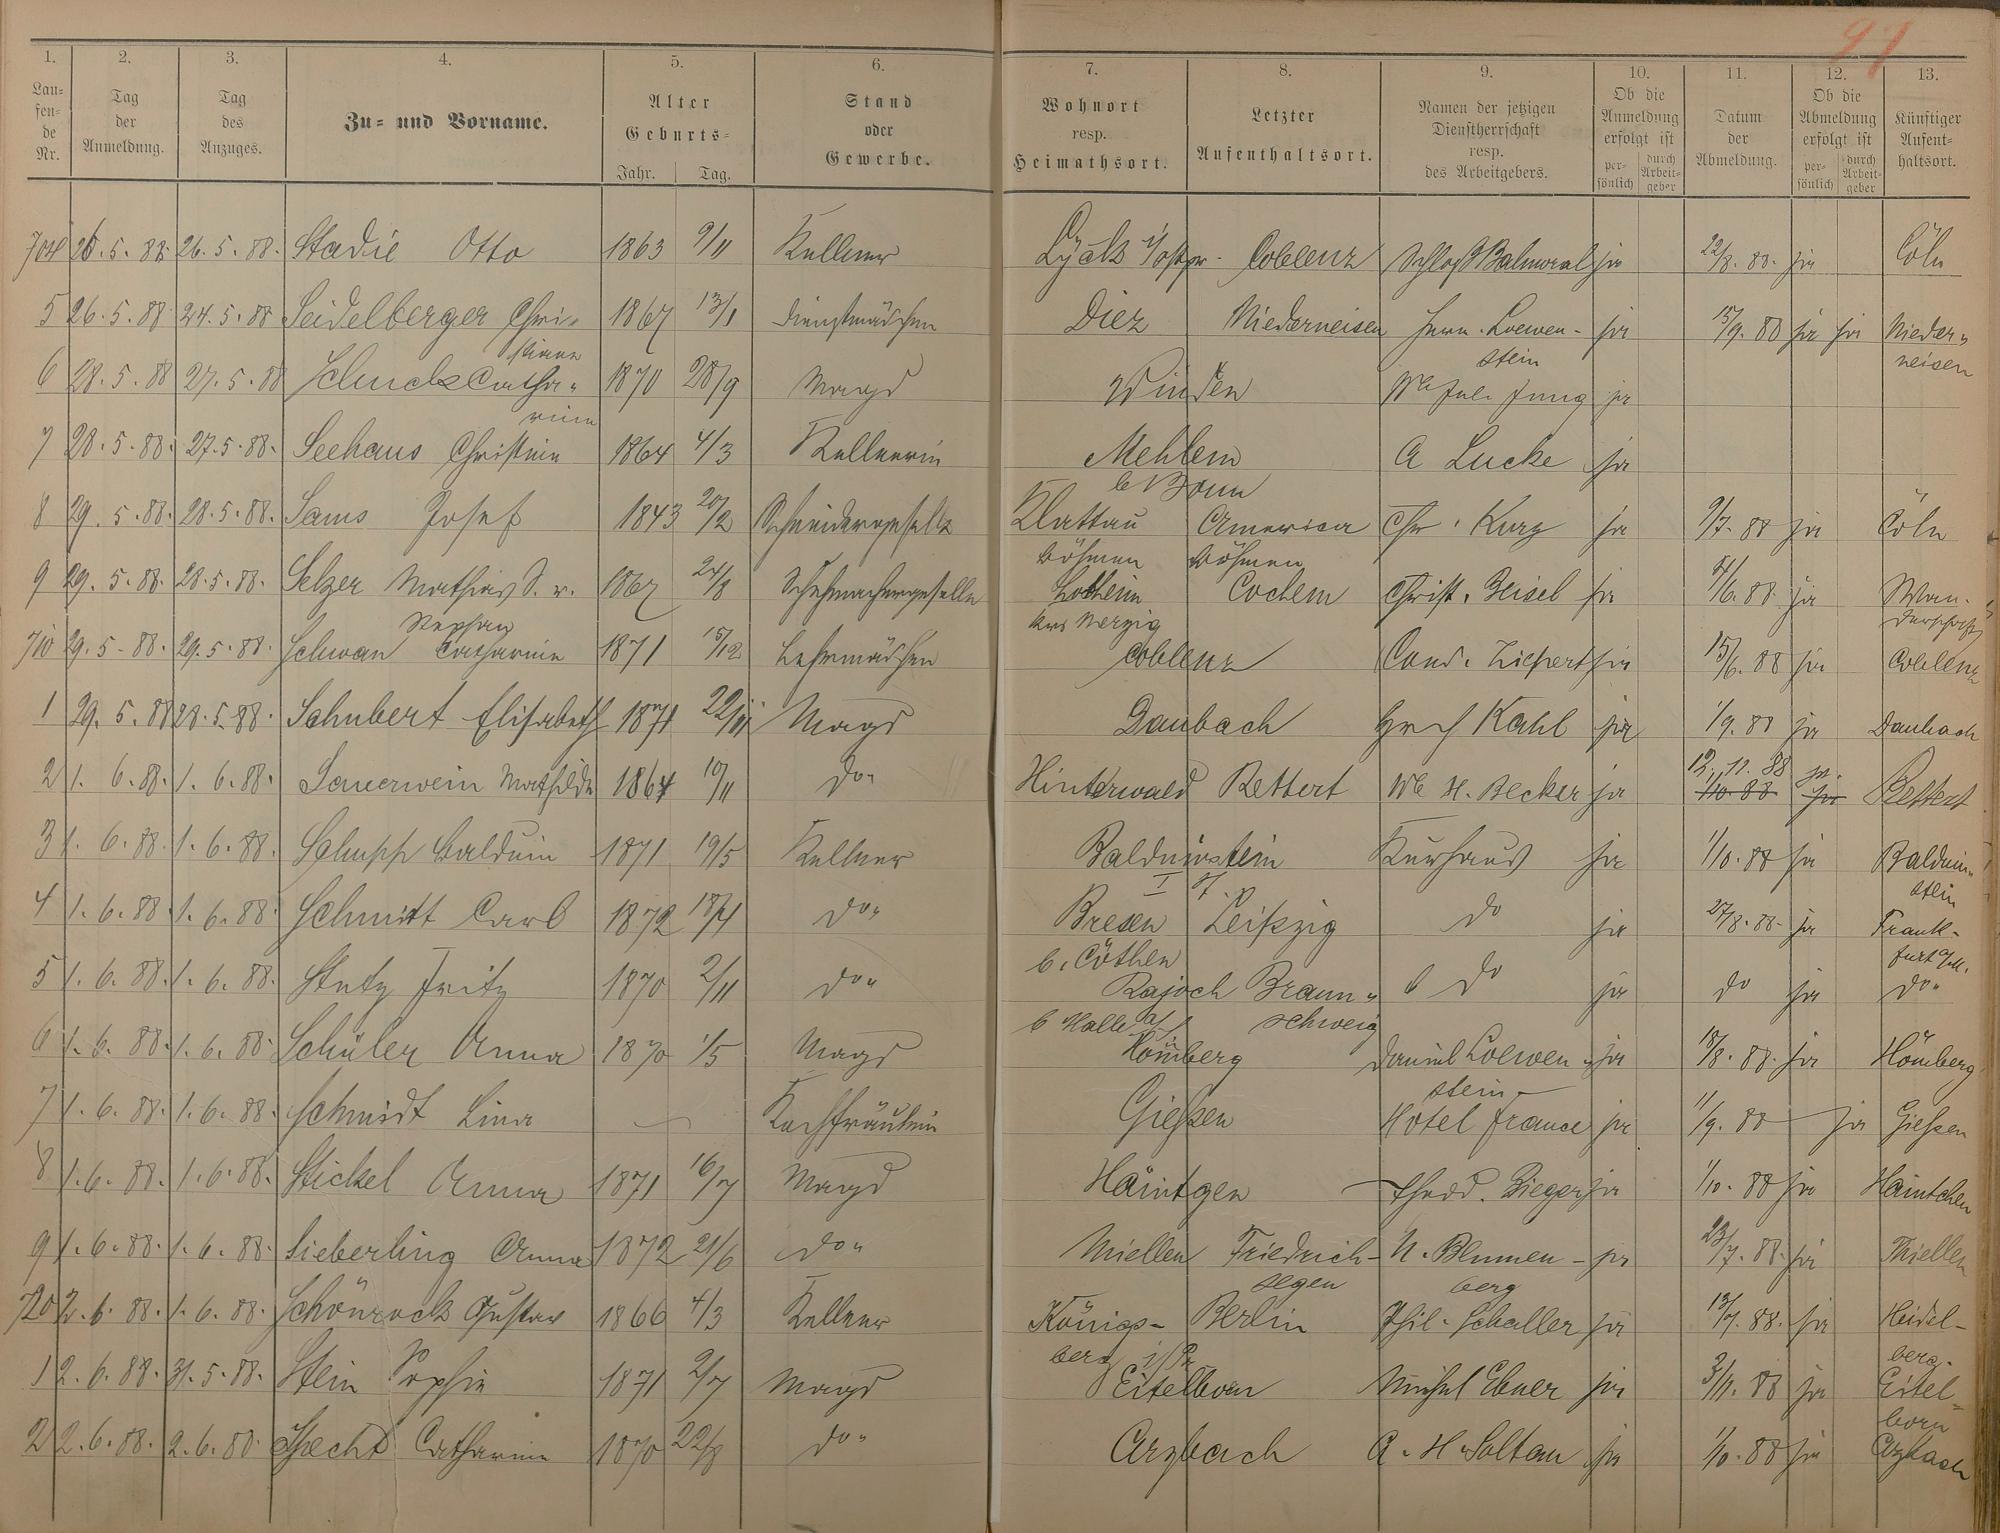 97
1. 2. 3. 4. 5. 6. 7. 8. 9. 10. 11. 12. 13.
Lau=fen=de Nr. Tag der Anmeldung. Tag des Anzuges. Zu= und Vorname. Alter Geburts= Jahr. Tag. Stand oder Gewerbe. Wohnort resp. Heimathsort. Letzter Aufenthaltsort. Namen der jetzigen Dienstherrschaft resp. des Arbeitgebers. Ob die Anmeldung erfolgt ist per=sönlich durch Arbeit=geber Datum der Abmeldung. Ob die Abmeldung erfolgt ist per=sönlich durch Arbeit=geber Künftiger Aufent=haltsort.
704 26.5.88. 26.5.88. Stadie Otto 1863 9/11 Kellner Lyck i/Ostpr. Coblenz Schloß Balmoral ja 22/8.88. ja Cöln
5 26.5.88 24.5.88 Seidelberger Chri=stiane 1867 13/1 Dienstmädchen Diez Niederneisen Herm. Loewen-stein ja 15/9.88 ja ja Nieder=neisen
6 28.5.88 27.5.88 Schuck Catha=rine 1870 28/9 Magd Winden We Jul. Jung ja
7 28.5.88. 27.5.88. Seehaus Christine 1864 4/3 Kellnerin Mehlem b/Bonn A Lucke ja
8 29.5.88. 28.5.88. Sams Josef 1843 20/2 Schneidergeselle Klattau Böhmen America Böhmen Chr. Kurz ja 9/7.88 ja Cöln
9 29.5.88. 28.5.88. Selzer Mathias S. v. Stephan 1867 24/8 Schuhmachergeselle Krs Merzig Cochem Christ. Beisel ja 4/6.88 ja Wan-derschaft
710 29.5.88. 29.5.88. Schwan Catharine 1871 15/12 Lehrmädchen Coblenz Cond. Ziepert ja 15/6.88 ja Coblenz
1 29.5.88 28.5.88. Schubert Elisabeth 1871 22/11 Magd Daubach Hrch Kahl ja 1/9.88 ja Daubach
2 1.6.88. 1.6.88. Sauerwein Mathilde 1864 10/11 do" Hinterwald Rettert We H. Becker ja 12.11.88 ja. 1/10.88 ja Rettert
3 1.6.88. 1.6.88. Schupp Balduin 1871 19/5 Kellner Balduinstein Kurhaus ja 1/10.88 ja Balduin=stein
4 1.6.88 1.6.88. Schmitt Carl 1872 18/4 do" Bresen b. Cöthen Leipzig do ja 27/8.88. ja Frank-furt a/M.
5 1.6.88. 1.6.88. Stutz Fritz 1870 2/11 do" Rajoch b Halle a/S Braun=schweig do ja do ja do"
6 1.6.88. 1.6.88. Schüler Anna 1870 1/5 Magd Hömberg Daniel Loewen=stein ja 18/8.88. ja Hömberg
7 1.6.88. 1.6.88. Schmidt Lina — Kochfräulein Gießen Hotel France ja 11/9.88 ja Gießen
8 1.6.88. 1.6.88. Stickel Anna 1871 16/7 Magd Haintgen Theod. Bieger ja 1/10.88 ja Haintchen
9 1.6.88. 1.6.88. Sieberling Anna 1872 21/6 do" Miellen Friedrich-segen N. Blumen-berg ja 23/7.88. ja Miellen
720 2.6.88. 1.6.88. Schönrock Gustav 1866 4/3 Kellner Königs-berg i/Pr Berlin Phil. Schaller ja 13/7.88. ja Heidel-berg.
1 2.6.88. 31.5.88. Stein Sophie 1871 2/7 Magd Eitelborn Michel Ebner ja 3/11.88 ja Eitel=born
2 2.6.88. 2.6.88. Specht Catharine 1870 22/8 do" Arzbach A. H. Soltau ja 1/10.88 ja Arzbach